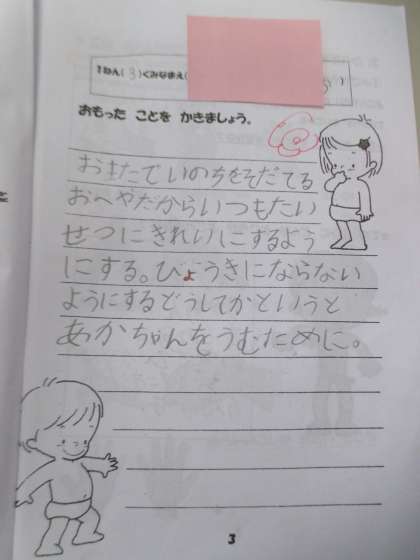 1ねん(3)くみなまえ(
)
おもった ことを かきましょう。
おまたでいのちをそだてる
おへやだからいつもたい
せつにきれいにするよう
にする。びょうきにならない
ようにするどうしてかというと
あかちゃんをうむために。
3